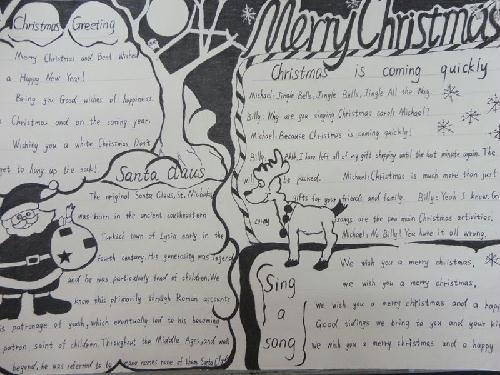 Christmas Greeting
Merry Christmas and Best Wished
a Happy New Year!
Bring you Good wishes of happiness
Christmas and on the coming year.
Wishing you a white Christmas Don't
get to hang up the sock!
Santa Claus
The original Santa Claus, St. Nicholas
was born in the ancient southeastern
Turkish town of Lysia early in the
fourth century. His generosity was
and he was particularly fond of children. We
know this primarily through Roman accounts
is patronage of youth, which eventually led to his becoming
patron saint of children. Throughout the Middle Ages, and well
beyond, he was referred to by many names none of them Santa
Merry Christmas
Christmas is coming quickly
Michael: Jingle Bells, Jingle Bells, Jingle All the Way.
Billy: Why are you singing Christmas carols Michael?
Michael: Because Christmas is coming quickly!
Billy: Ahh I have left all of my gift shopping until the last minute again. The
packed. Michael: Christmas is much more than just
gifts for your friends and family. Billy: Yeah I know. Gi
are the two main Christmas activities.
Michael: No Billy! You have it all wrong.
Sing
a
song
We wish you a merry christmas,
we wish you a merry christmas,
we wish you a merry christmas and a happ
Good tidings we bring to you and your kin
we wish you a merry christmas and a happy